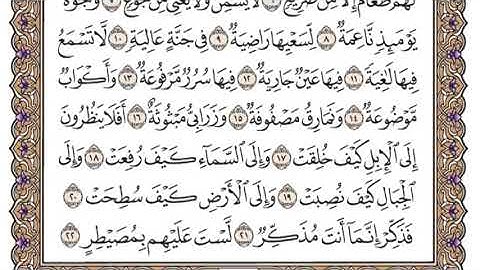 لَهُمْ طَعَامٌ إِلَّا مِن ضَرِيعٍ ٦ لَّا يُسْمِنُ وَلَا يُغْنِي مِن جُوعٍ ٧ وُجُوهٌ
يَوْمَئِذٍ نَّاعِمَةٌ ٨ لِّسَعْيِهَا رَاضِيَةٌ ٩ فِي جَنَّةٍ عَالِيَةٍ ١٠ لَّا تَسْمَعُ
فِيهَا لَٰغِيَةً ١١ فِيهَا عَيْنٌ جَارِيَةٌ ١٢ فِيهَا سُرُرٌ مَّرْفُوعَةٌ ١٣ وَأَكْوَابٌ
مَّوْضُوعَةٌ ١٤ وَنَمَارِقُ مَصْفُوفَةٌ ١٥ وَزَرَابِيُّ مَبْثُوثَةٌ ١٦ أَفَلَا يَنظُرُونَ
إِلَى الْإِبِلِ كَيْفَ خُلِقَتْ ١٧ وَإِلَى السَّمَاءِ كَيْفَ رُفِعَتْ ١٨ وَإِلَى
الْجِبَالِ كَيْفَ نُصِبَتْ ١٩ وَإِلَى الْأَرْضِ كَيْفَ سُطِحَتْ ٢٠
فَذَكِّرْ إِنَّمَا أَنتَ مُذَكِّرٌ ٢١ لَّسْتَ عَلَيْهِم بِمُصَيْطِرٍ ٢٢